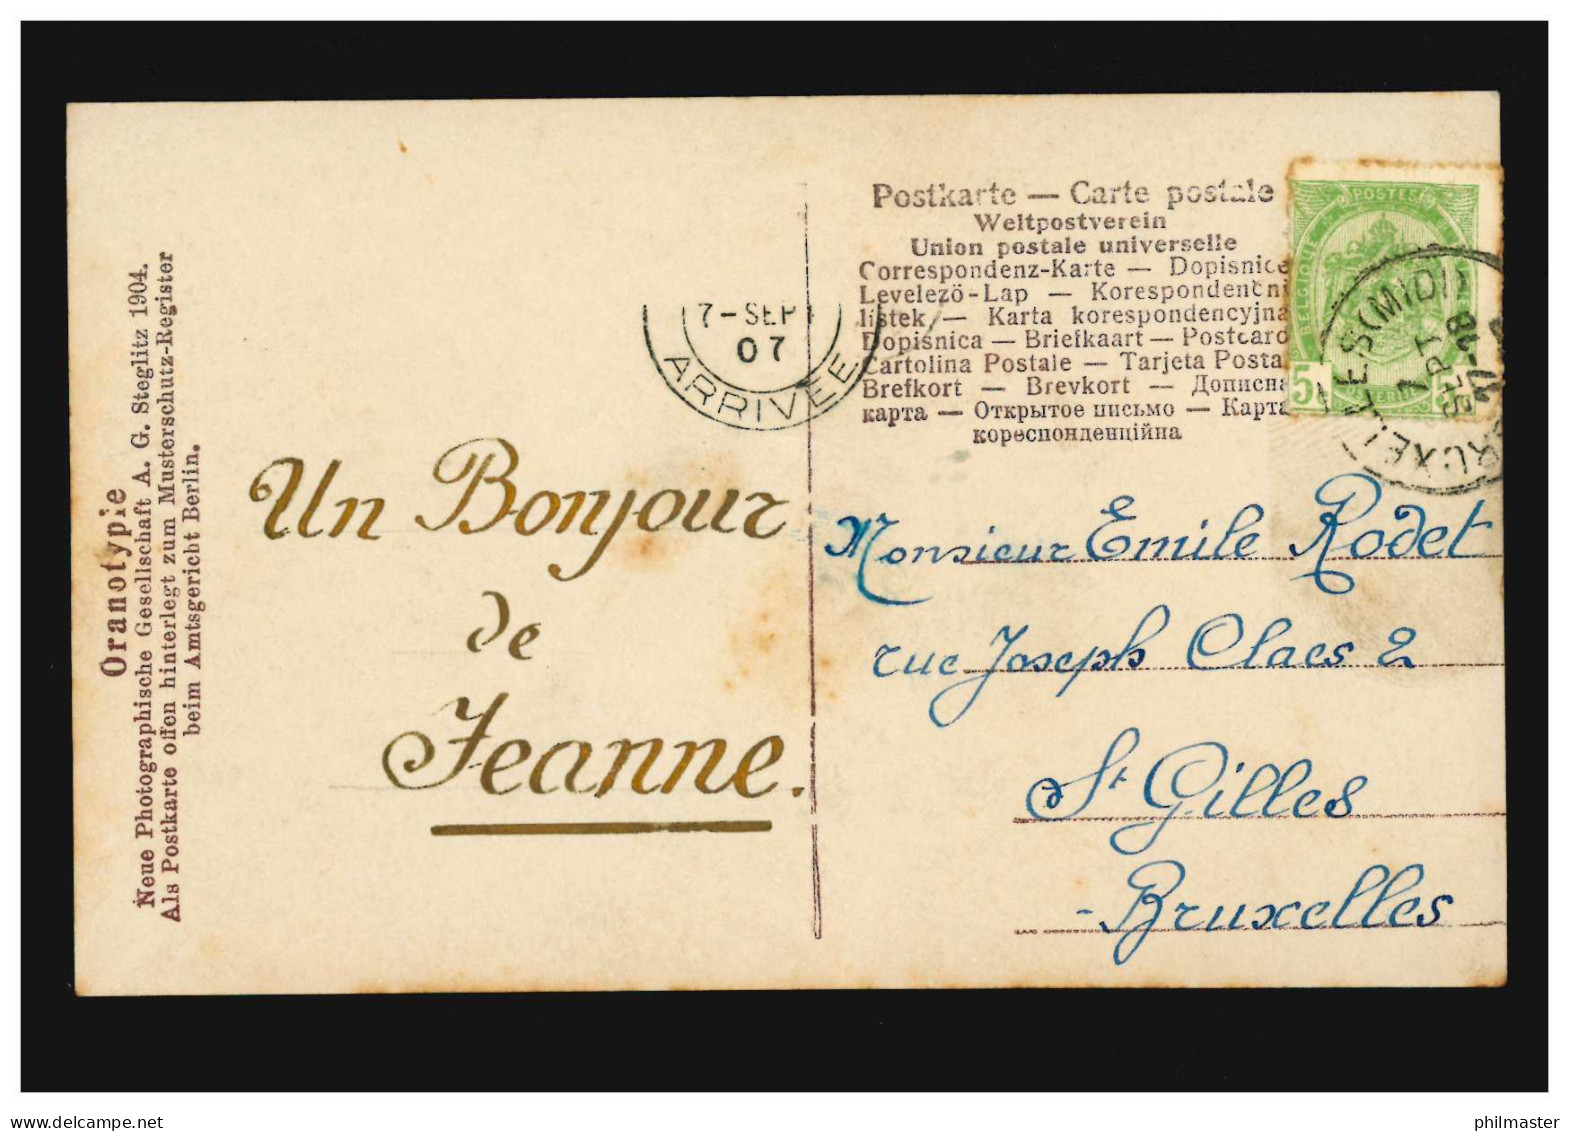 Oranotypie
Neue Photographische Gesellschaft A. G. Steglitz 1904.
Als Postkarte offen hinterlegt zum Musterschutz-Register
beim Amtsgericht Berlin.
7-SEPT
07
ARRIVÉE
Un Bonjour
de
Jeanne.
Postkarte — Carte postale
Weltpostverein
Union postale universelle
Correspondenz-Karte — Dopisnice
Levelező-Lap — Korespondenčni
listek — Karta korespondencyjna
Dopisnica — Briefkaart — Postcard
Cartolina Postale — Tarjeta Postal
Brefkort — Brevkort — Дописна
карта — Открытое письмо — Карта
кореспонденційна
POSTES
BELGIQUE
5 5
BRUXELLES (MIDI)
7
SEPT
Monsieur Emile Rodet
rue Joseph Claes 2
St Gilles
-Bruxelles
delcampe.net
philmaster